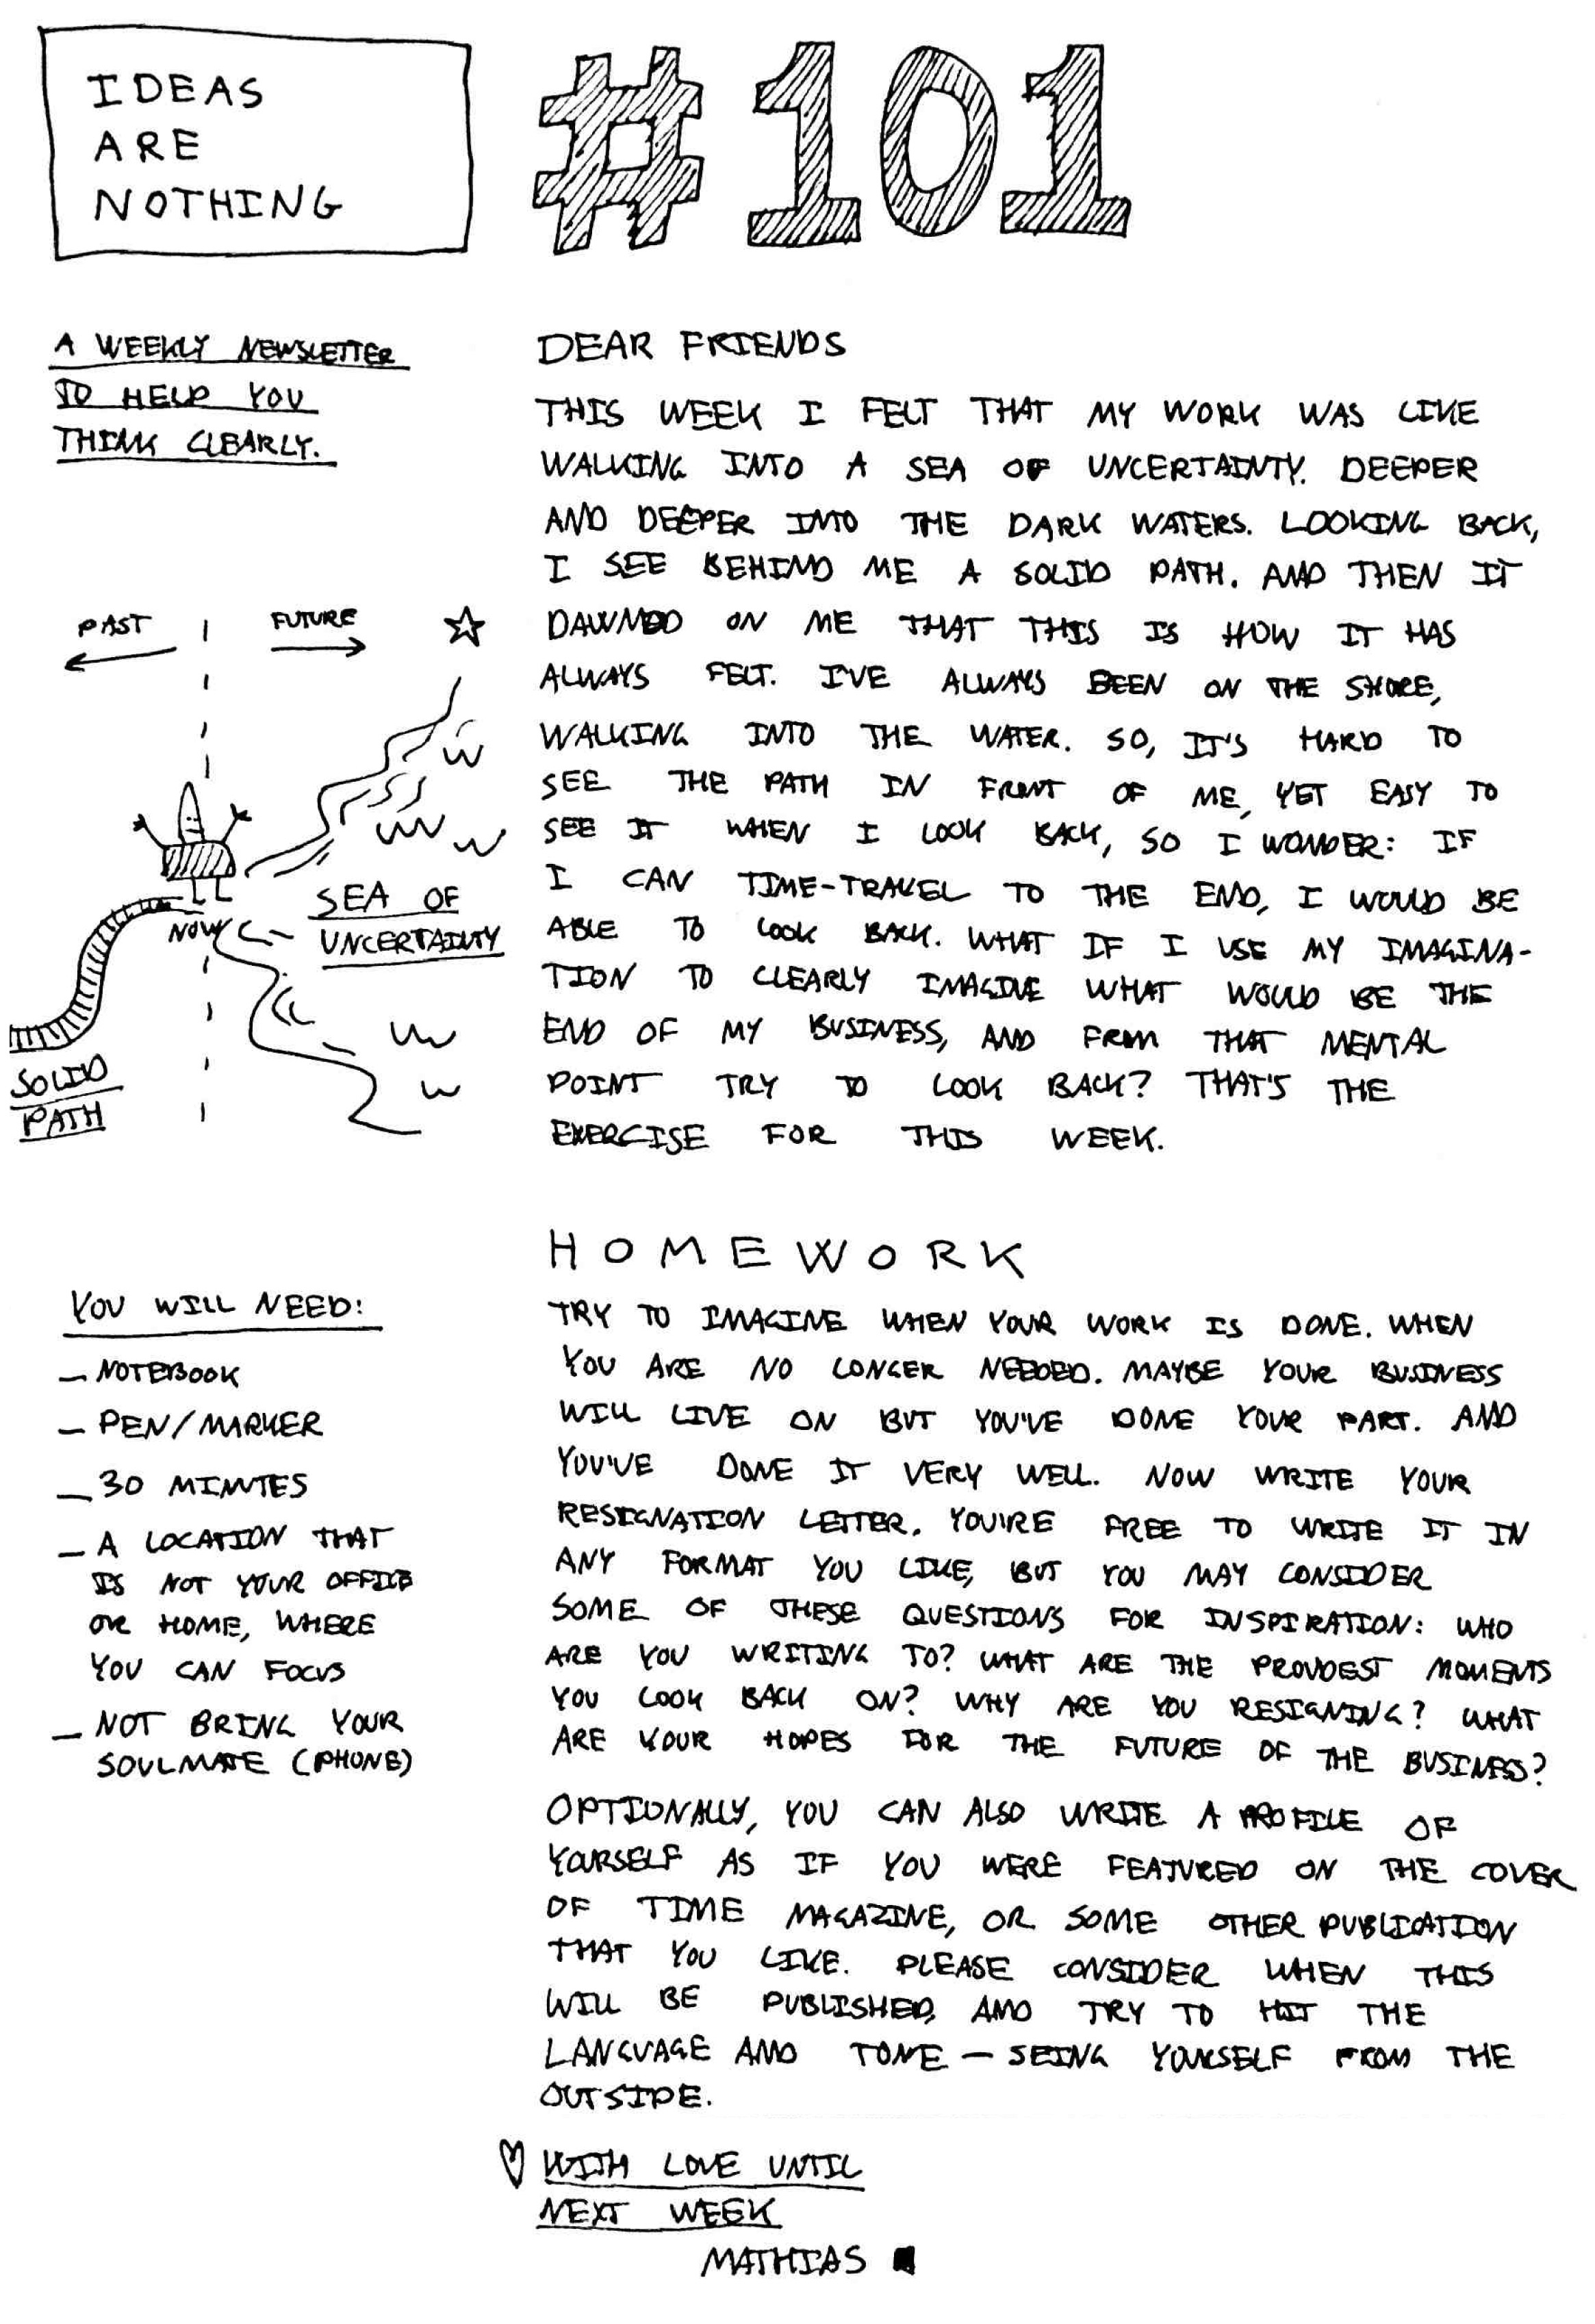 IDEAS
ARE
NOTHING
#101
A WEEKLY NEWSLETTER
TO HELP YOU
THINK CLEARLY.
DEAR FRIENDS
THIS WEEK I FELT THAT MY WORK WAS LIKE
WALKING INTO A SEA OF UNCERTAINTY. DEEPER
AND DEEPER INTO THE DARK WATERS. LOOKING BACK,
I SEE BEHIND ME A SOLID PATH. AND THEN IT
DAWNED ON ME THAT THIS IS HOW IT HAS
ALWAYS FELT. I'VE ALWAYS BEEN ON THE SHORE,
WALKING INTO THE WATER. SO, IT'S HARD TO
SEE THE PATH IN FRONT OF ME, YET EASY TO
SEE IT WHEN I LOOK BACK, SO I WONDER: IF
I CAN TIME-TRAVEL TO THE END, I WOULD BE
ABLE TO LOOK BACK. WHAT IF I USE MY IMAGINA-
TION TO CLEARLY IMAGINE WHAT WOULD BE THE
END OF MY BUSINESS, AND FROM THAT MENTAL
POINT TRY TO LOOK BACK? THAT'S THE
EXERCISE FOR THIS WEEK.
PAST
FUTURE
NOW
SEA OF
UNCERTAINTY
SOLID
PATH
HOMEWORK
TRY TO IMAGINE WHEN YOUR WORK IS DONE. WHEN
YOU ARE NO LONGER NEEDED. MAYBE YOUR BUSINESS
WILL LIVE ON BUT YOU'VE DONE YOUR PART. AND
YOU'VE DONE IT VERY WELL. NOW WRITE YOUR
RESIGNATION LETTER. YOU'RE FREE TO WRITE IT IN
ANY FORMAT YOU LIKE, BUT YOU MAY CONSIDER
SOME OF THESE QUESTIONS FOR INSPIRATION: WHO
ARE YOU WRITING TO? WHAT ARE THE PROUDEST MOMENTS
YOU LOOK BACK ON? WHY ARE YOU RESIGNING? WHAT
ARE YOUR HOPES FOR THE FUTURE OF THE BUSINESS?
OPTIONALLY, YOU CAN ALSO WRITE A PROFILE OF
YOURSELF AS IF YOU WERE FEATURED ON THE COVER
OF TIME MAGAZINE, OR SOME OTHER PUBLICATION
THAT YOU LIKE. PLEASE CONSIDER WHEN THIS
WILL BE PUBLISHED, AND TRY TO HIT THE
LANGUAGE AND TONE — SEING YOURSELF FROM THE
OUTSIDE.
YOU WILL NEED:
— NOTEBOOK
— PEN/MARKER
— 30 MINUTES
— A LOCATION THAT
IS NOT YOUR OFFICE
OR HOME, WHERE
YOU CAN FOCUS
— NOT BRING YOUR
SOULMATE (PHONE)
WITH LOVE UNTIL
NEXT WEEK
MATHIAS